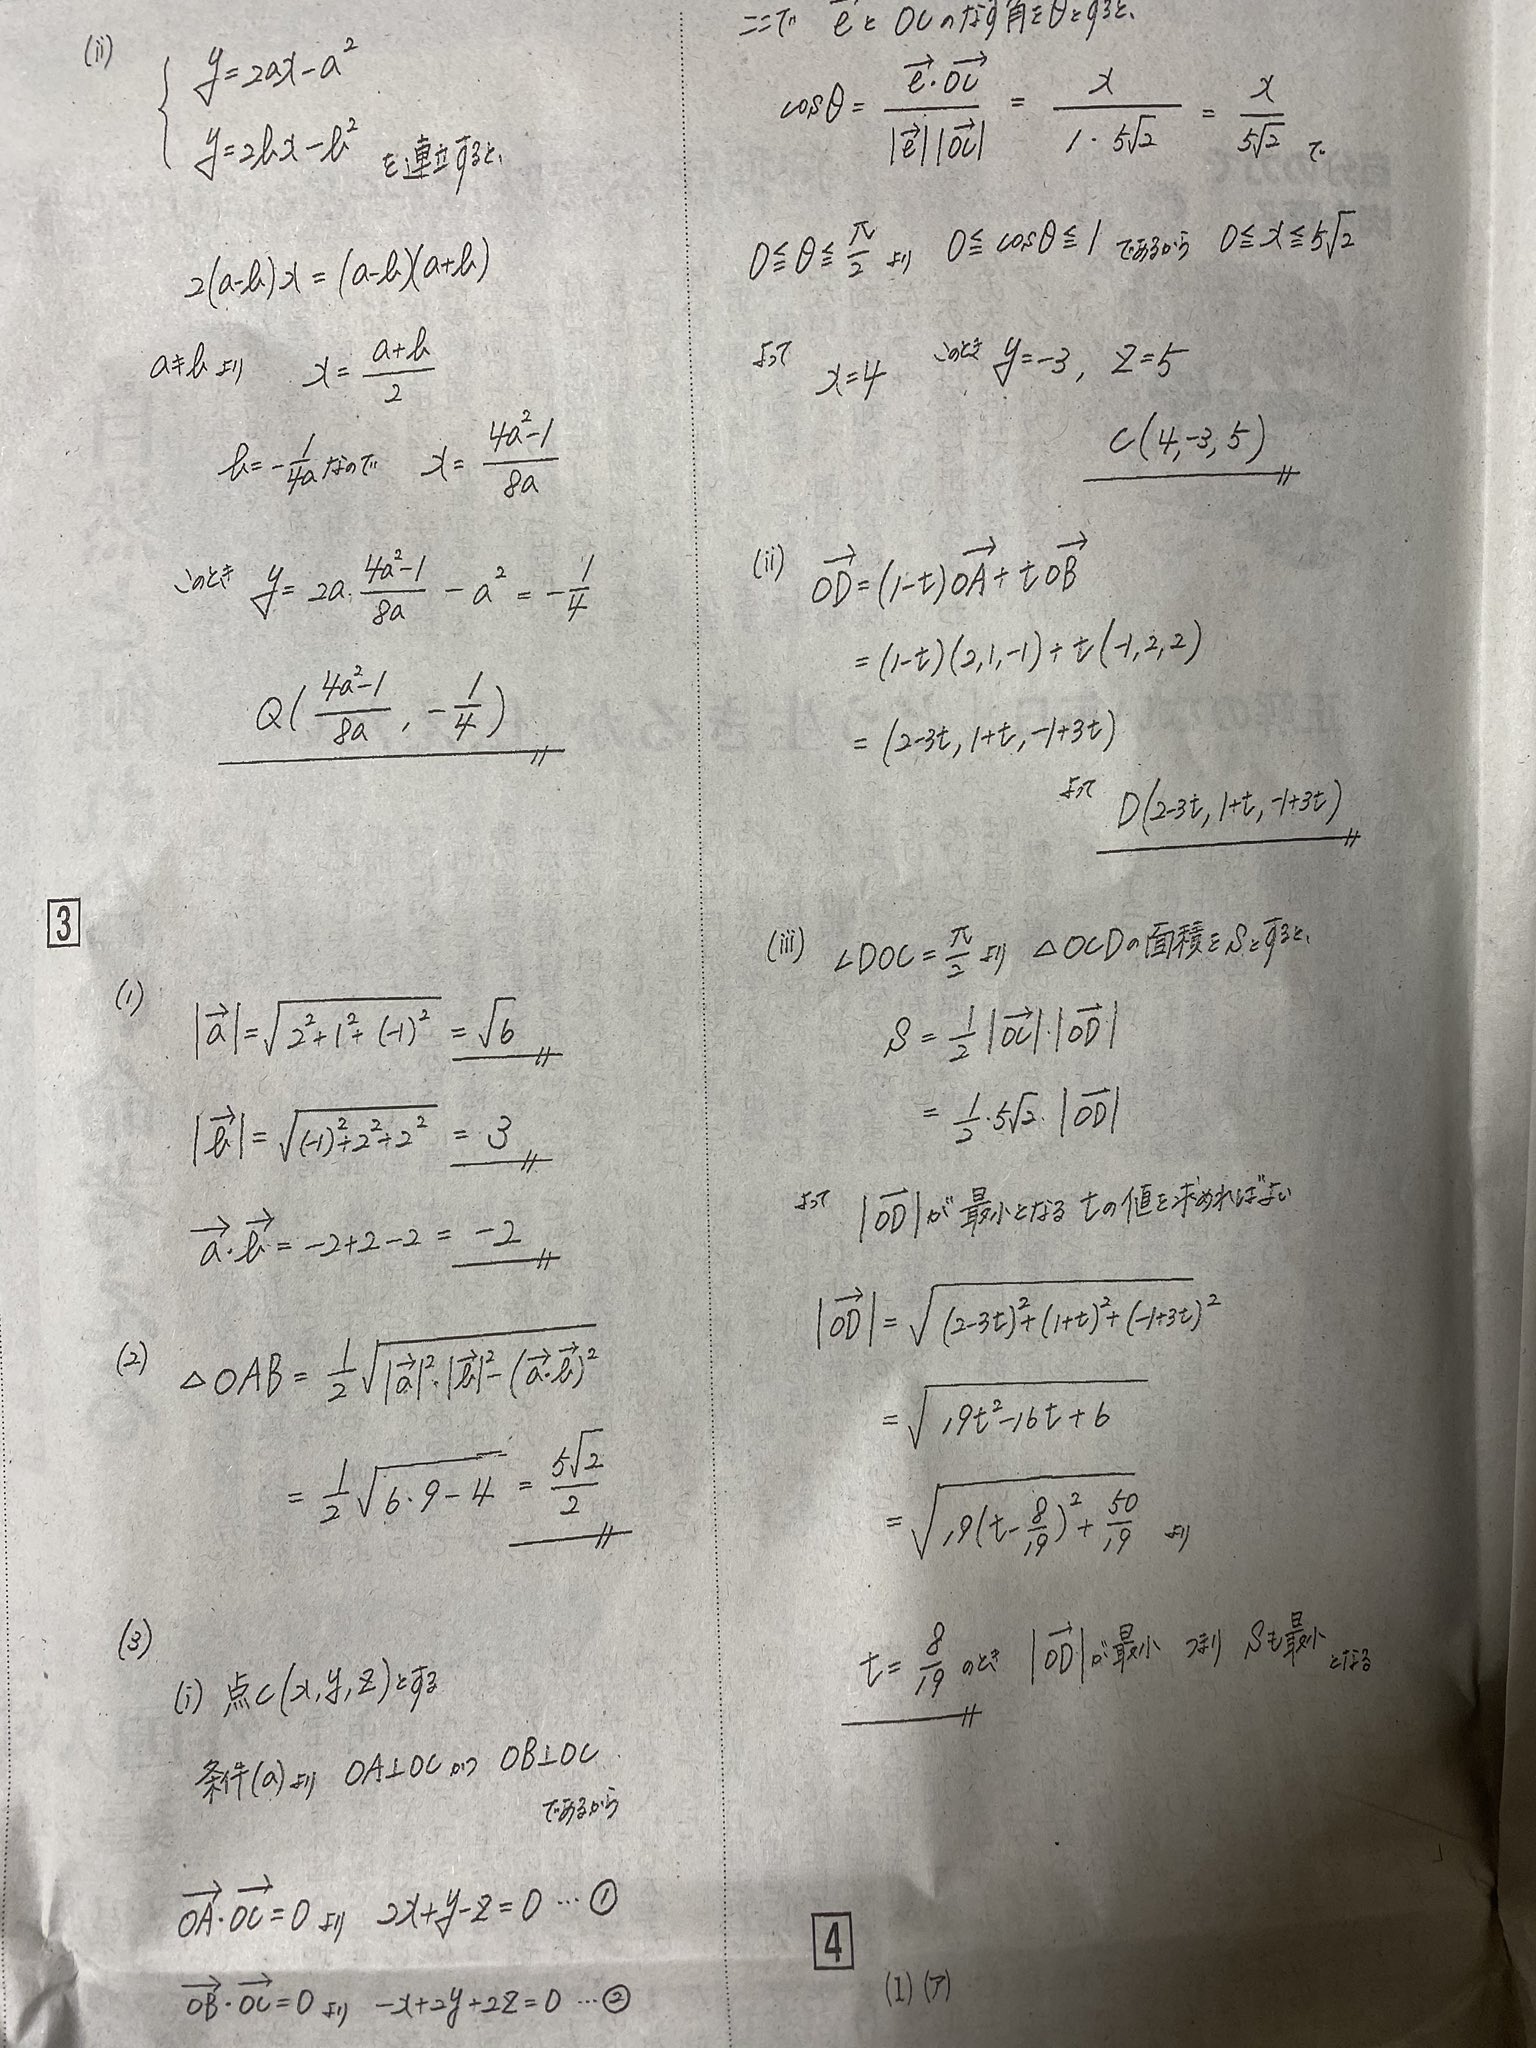 (ii)
y=2ax-a²
y=2bx-b² を連立すると、
2(a-b)x=(a-b)(a+b)
a≠bより x=\frac{a+b}{2}
b=-\frac{1}{4a}なので x=\frac{4a²-1}{8a}
このとき y=2a·\frac{4a²-1}{8a}-a²=-\frac{1}{4}
Q(\frac{4a²-1}{8a}, -\frac{1}{4})
3
(1)
|\vec{a}|=\sqrt{2²+1²+(-1)²}=√6
|\vec{b}|=\sqrt{(-1)²+2²+2²}=3
\vec{a}·\vec{b}=-2+2-2=-2
(2) △OAB=\frac{1}{2}\sqrt{|\vec{a}|²·|\vec{b}|²-(\vec{a}·\vec{b})²}
=\frac{1}{2}\sqrt{6·9-4}=\frac{5√2}{2}
(3)
(i) 点C(x,y,z)とする
条件(a)より OA⊥OCかつ OB⊥OC
であるから
\vec{OA}·\vec{OC}=0より 2x+y-z=0…①
\vec{OB}·\vec{OC}=0より -x+2y+2z=0…②
ここで \vec{e}と\vec{OC}のなす角をθとすると、
cosθ=\frac{\vec{e}·\vec{OC}}{|\vec{e}||\vec{OC}|}=\frac{x}{1·5√2}=\frac{x}{5√2}で
0≦θ≦\frac{π}{2}より 0≦cosθ≦1であるから 0≦x≦5√2
よって x=4 このとき y=-3, z=5
C(4,-3,5)
(ii) \vec{OD}=(1-t)\vec{OA}+t\vec{OB}
=(1-t)(2,1,-1)+t(-1,2,2)
=(2-3t,1+t,-1+3t)
よって D(2-3t,1+t,-1+3t)
(iii) ∠DOC=\frac{π}{2}より △OCDの面積をSとすると、
S=\frac{1}{2}|\vec{OC}|·|\vec{OD}|
=\frac{1}{2}·5√2·|\vec{OD}|
よって |\vec{OD}|が最小となるtの値を求めればよい
|\vec{OD}|=\sqrt{(2-3t)²+(1+t)²+(-1+3t)²}
=\sqrt{19t²-16t+6}
=\sqrt{19(t-\frac{8}{19})²+\frac{50}{19}}より
t=\frac{8}{19}のとき |\vec{OD}|が最小 つまり Sも最小となる
4
(1)(ア)